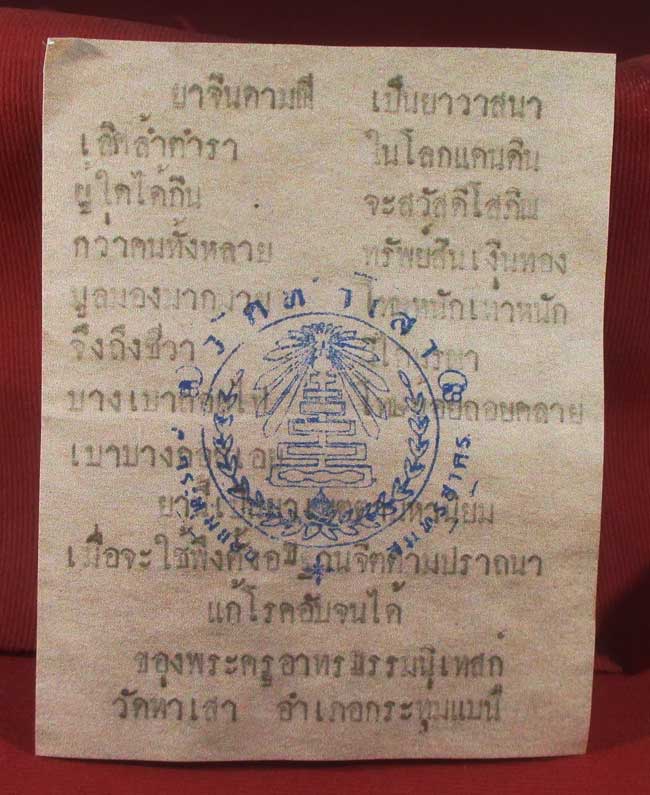 ยาจินดามณี เป็นยาวาสนา
เลิศล้ำตำรา ในโลกแดนดิน
ผู้ใดได้กิน จะสวัสดิโสภิณ
กว่าคนทั้งหลาย ทรัพย์สินเงินทอง
มูลมองมากมาย โทษหนักเท่าหนัก
จึงถึงชีวา
บางเบา คลาย
เบาบาง
เมื่อจะใช้พึงตั้ง จิตตามปราถนา
แก้โรคอับจนได้
ของพระครูอาทรธรรมนิเทสก์
วัดท่าเสา อำเภอกระทุ่มแบน
วัดท่าเสา
สมุทรสาคร